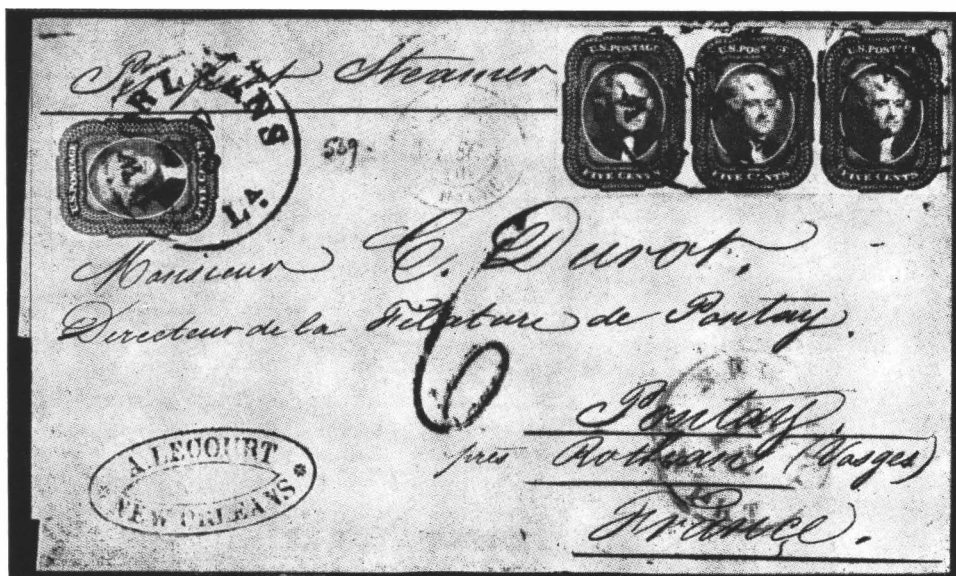 Steamer
U.S. POSTAGE
FIVE CENTS
U.S. POSTAGE
FIVE CENTS
U.S. POSTAGE
FIVE CENTS
U.S. POSTAGE
FIVE CENTS
RLEANS
La
569
Monsieur C. Durot.
Directeur de la Filature de Pontay.
6
Pontay.
près Rothau. (Vosges)
France.
A. LECOURT
NEW ORLEANS